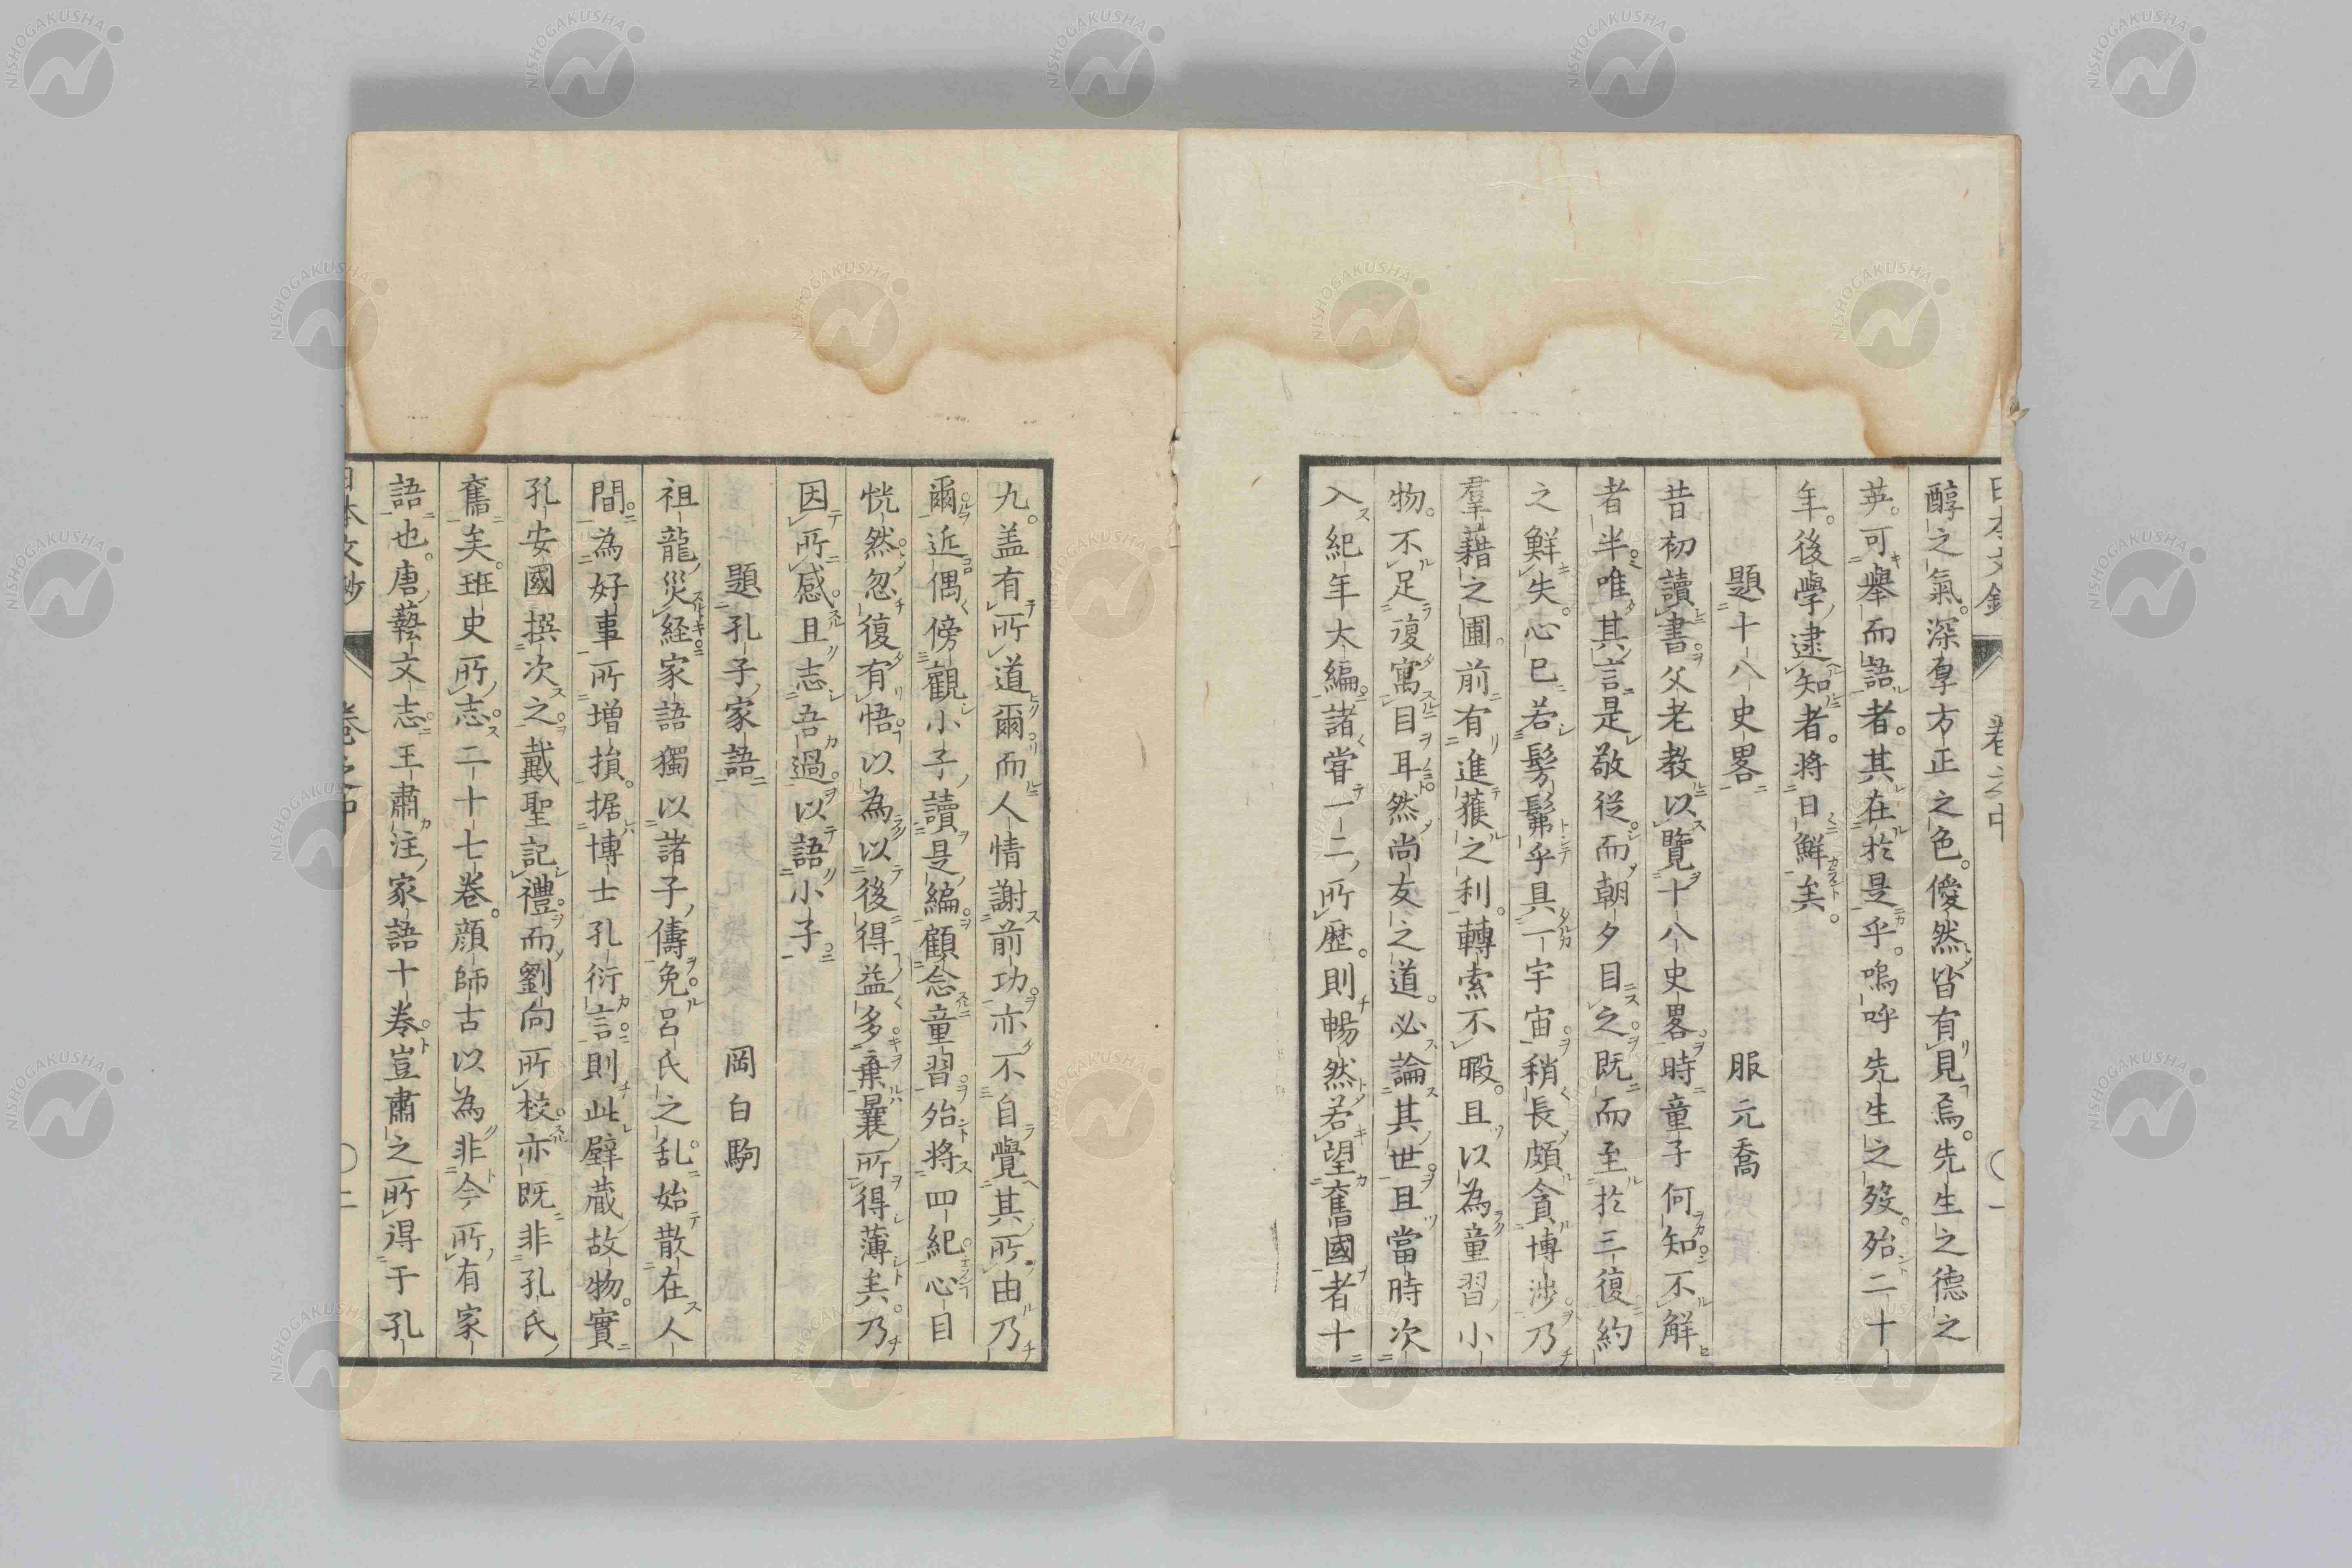 醇之氣。深厚方正之色。優然皆有見焉。先生之德之
英。可舉而語者。其在於是乎。嗚呼先生之歿。殆二十
年。後學逮知者。將日鮮矣。
題十八史畧 服元喬
昔初讀書。父老教以覽十八史畧。時童子何知。不解
者半。唯其言是敬從。而朝夕目之。既而至於三復。約
之鮮失。心已若髣髴乎具一宇宙。稍長頗貪博涉。乃
羣藉之圃。前有進獲之利。轉索不暇。且以為童習小
物。不足復寓目耳。然尚友之道。必論其世。且當時次
入紀年大編。諸嘗一二所歷。則暢然若望舊國者十
九。盖有所道爾而人情謝前功。亦不自覺其所由。乃
爾近偶傍觀小子讀是編。顧念童習。殆將四紀。心目
恍然。忽復有悟。以為以後得益多。棄曩所得薄矣。乃
因所感。且志吾過。以語小子
題孔子家語 岡白駒
祖龍災経。家語獨以諸子儔免。呂氏之乱。始散在人
間。為好事所増損。据博士孔衍言。則此壁蔵故物。實
孔安國撰次之。戴聖記禮。而劉向所校。亦既非孔氏
舊矣。班史所志。二十七巻。顔師古以為非今所有家
語也。唐藝文志。王肅注家語十巻。豈肅之所得于孔
日本文鈔 卷之中 〇一
日本文鈔 卷之中 〇二
NISHOGAKUSHA